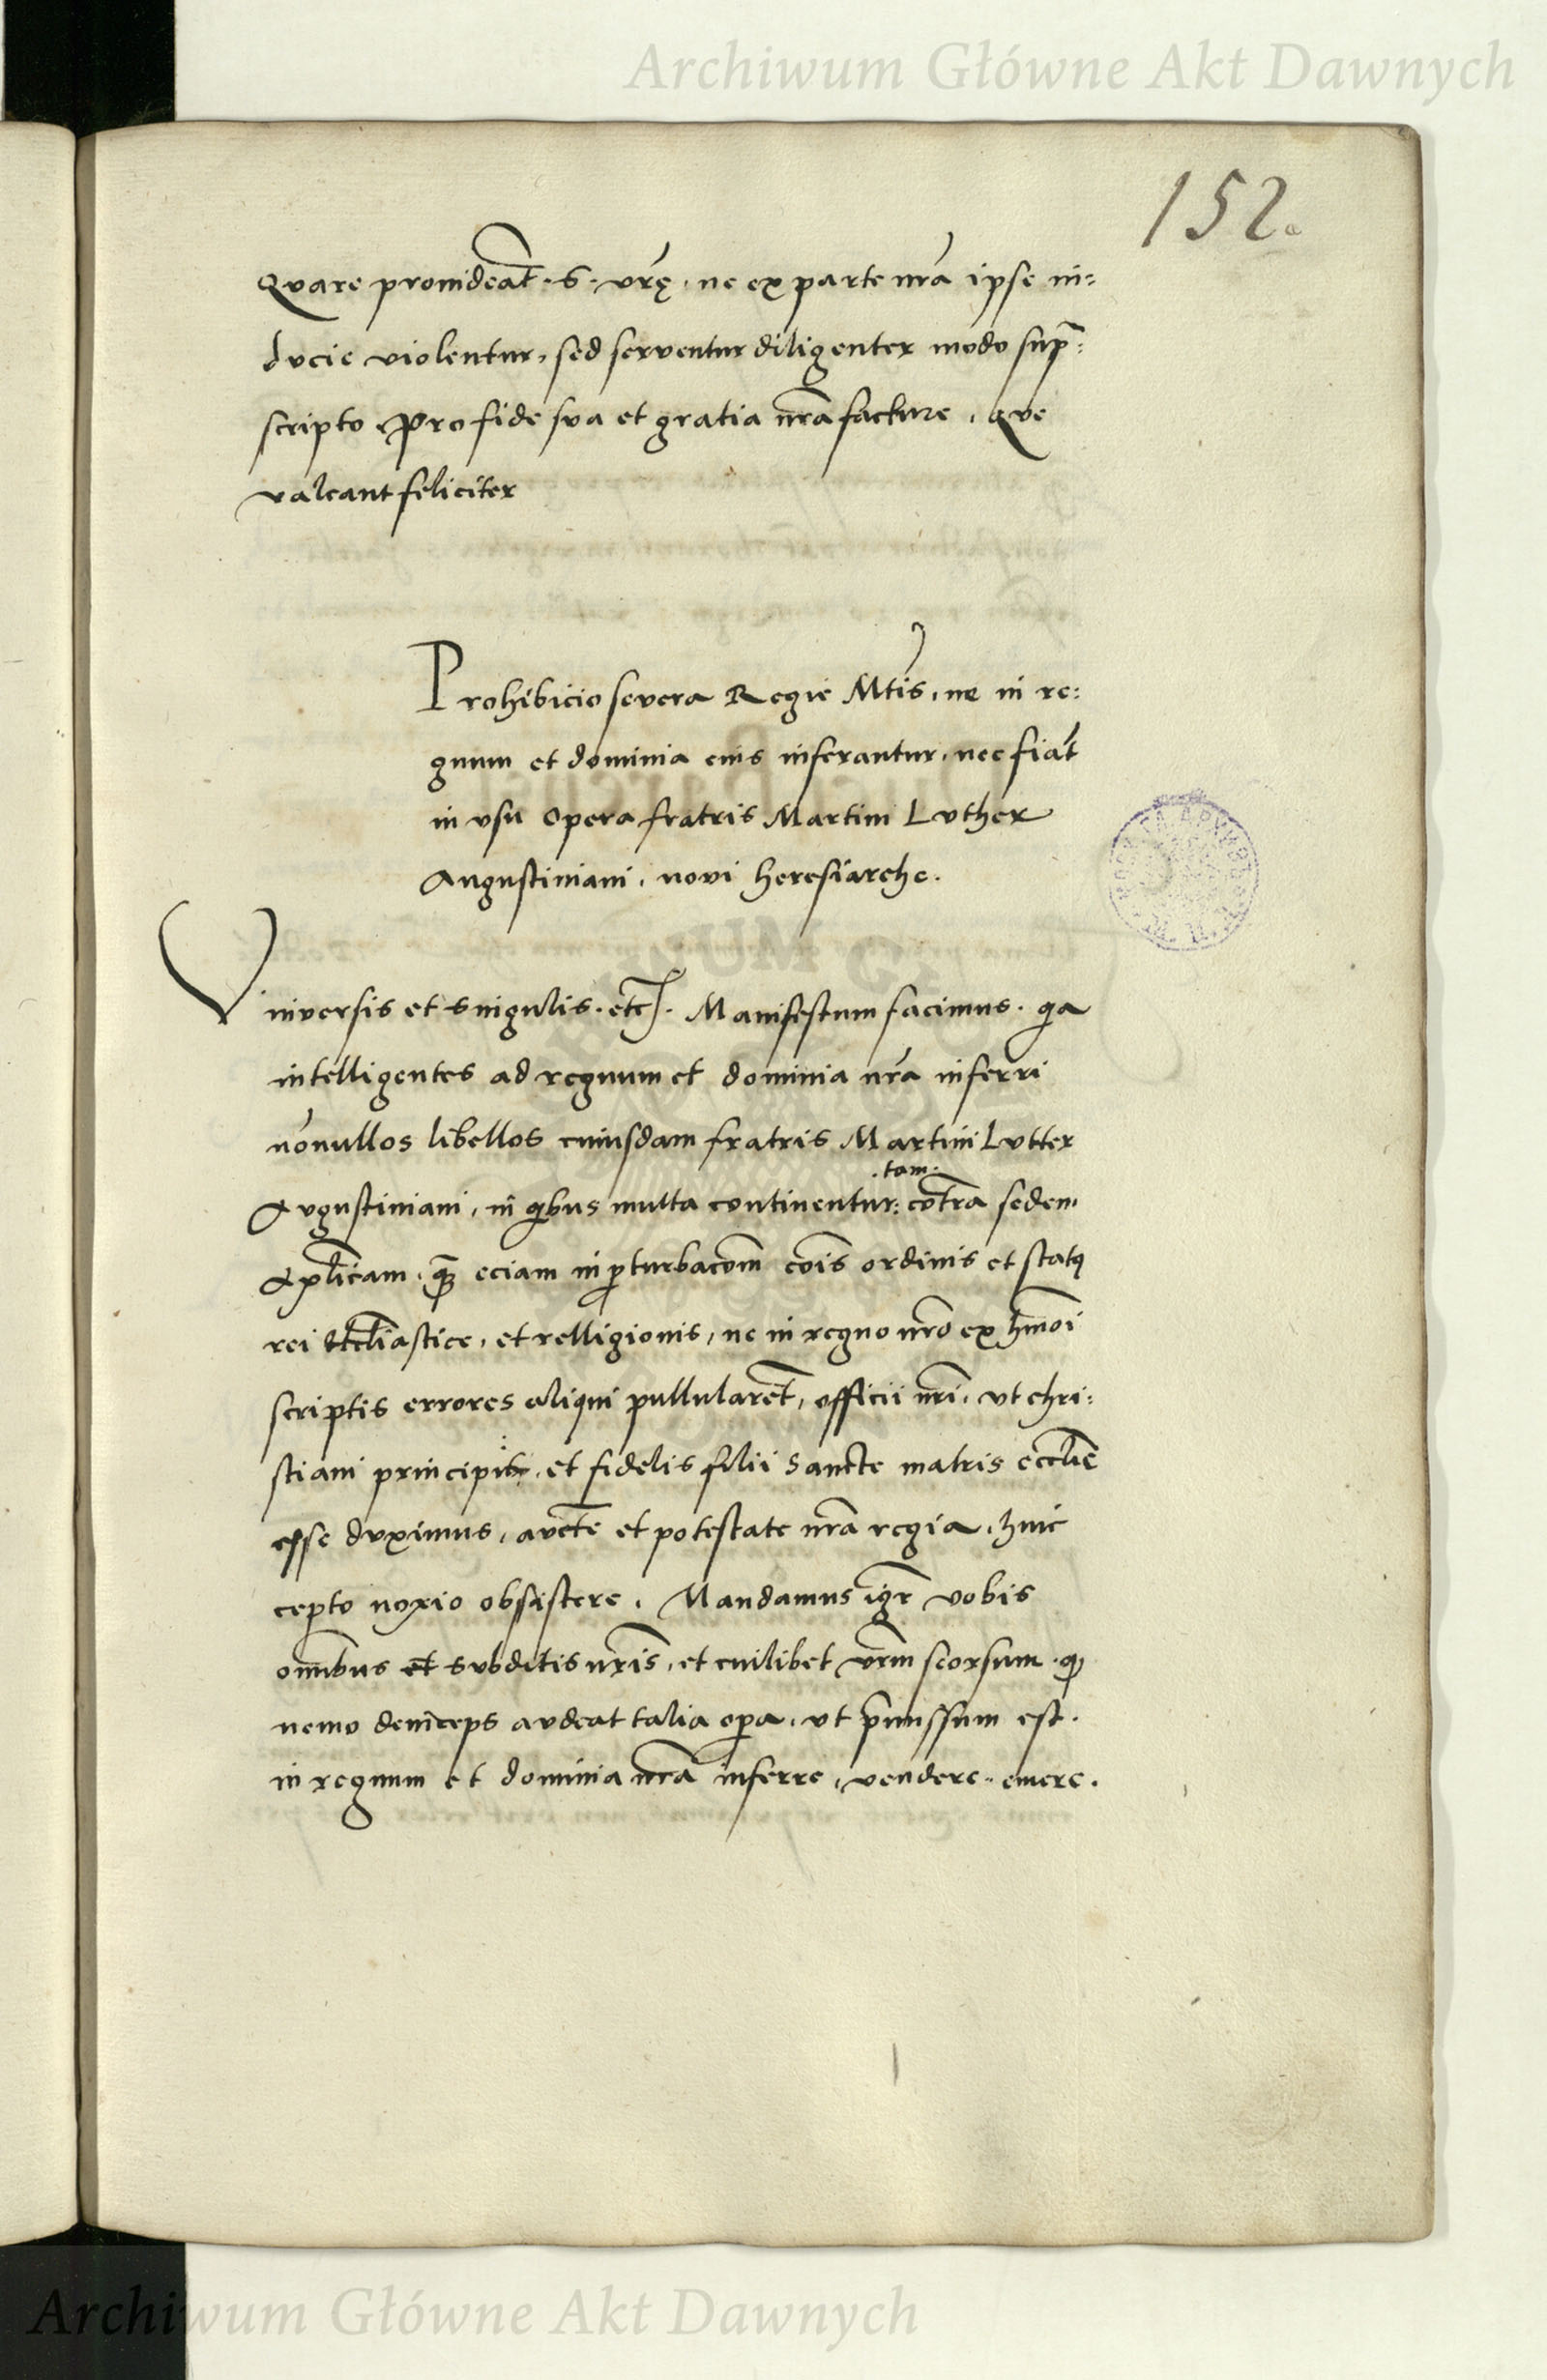 Archiwum Główne Akt Dawnych
152.
Qvare provideāt · S · vr̄ę, ne ex parte nr̄a ipse in:
dvcie violentur, sed serventur diligenter modo sup̄:
scripto, Pro fide sva et gratia nr̄a facture, qve
valeant feliciter
Prohibicio severa Regie Mt̄is, ne in re:
gnum et dominia eius inferantur, nec fiāt
in vsu opera fratris Martini Lvther
Augustiniani, novi heresiarche.
Vniversis et singulis · etc̄ · Manifestum facimus · qa
intelligentes ad regnum et dominia nr̄a inferri
nōnullos libellos cuiusdam fratris Martini Lvtter
Avgustiniani, in qibus multa continentur: .tam. cōtra sedem
Apl̄icam, q̄ȝ eciam in ꝑturbacōm cōis ordinis et statꝯ
rei Eccl̄iastice, et relligionis, ne in regno nr̄o ex hm̄oi
scriptis errores aliqui pullularēt, officii nr̄i, vt chri:
stiani principis, et fidelis filii Sancte matris eccl̄ie
esse dvximus, avct̄e et potestate nr̄a regia, huic
cepto noxio obsistere, Mandamus igr̄ vobis
om̄ibus et svbditis nr̄is, et cuilibet vr̄m seorsum · qꝫ
nemo deinceps avdeat talia oꝑa, vt p̄missum est.
in regnum et dominia nr̄a inferre, vendere, emere.
Archiwum Główne Akt Dawnych